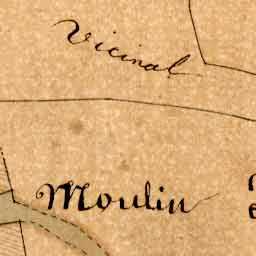 Vicinal
Moulin